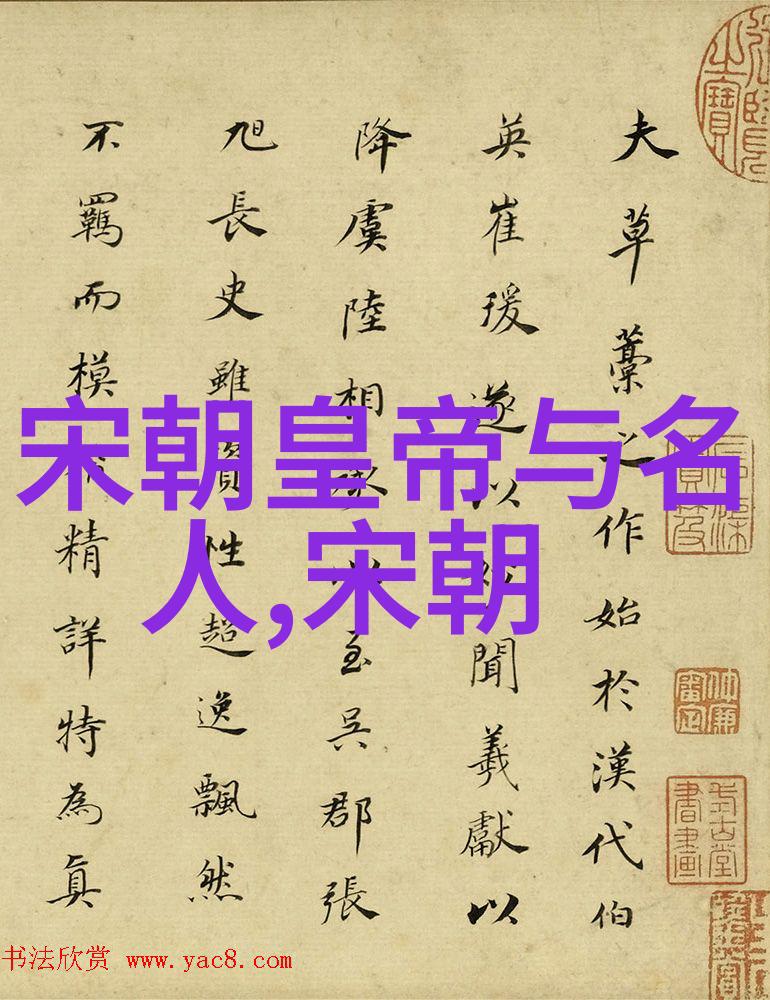 宋朝皇帝与名
人,宋朝
夫草藁之作始於漢代伯
英崔瑗遂以聞羲獻以
降虞陸相承至吳郡張
旭長史雖資性超逸飄然
不羈而模精詳特為真
书法欣赏 www.yac8.com